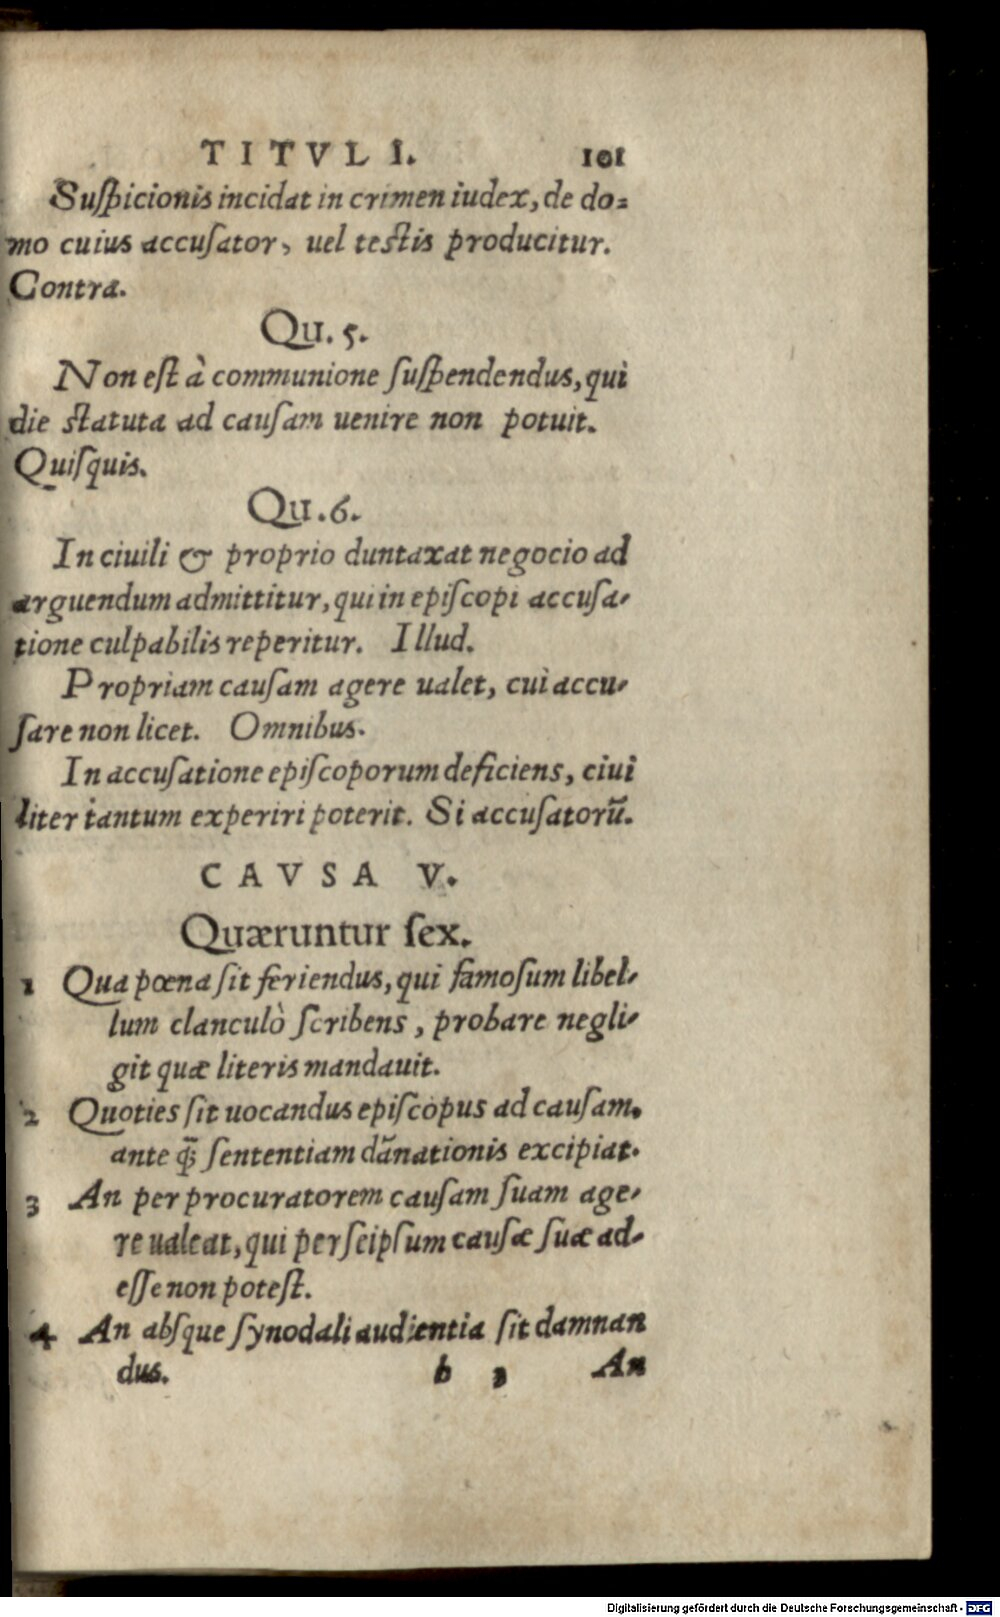 TITVLI. 101
Suſpicionis incidat in crimen iudex, de do=
mo cuius accuſator, uel teſtis producitur.
Contra.
Qu. 5.
Non eſt à communione ſuſpendendus, qui
die ſtatuta ad cauſam uenire non potuit.
Quiſquis.
Qu. 6.
In ciuili & proprio duntaxat negocio ad
arguendum admittitur, qui in epiſcopi accuſa-
tione culpabilis reperitur. Illud.
Propriam cauſam agere ualet, cui accu-
ſare non licet. Omnibus.
In accuſatione epiſcoporum deficiens, ciui
liter tantum experiri poterit. Si accuſatorũ.
CAVSA V.
Quæruntur ſex.
1 Qua pœna ſit feriendus, qui famoſum libel-
lum clanculò ſcribens, probare negli-
git quæ literis mandauit.
2 Quoties ſit uocandus epiſcopus ad cauſam.
ante q̃ꝫ ſententiam dãnationis excipiat.
3 An per procuratorem cauſam ſuam age-
re ualeat, qui per ſeipſum cauſæ ſuæ ad-
eſſe non poteſt.
4 An abſque ſynodali audientia ſit damnan
dus. b 3 An
Digitalisierung gefördert durch die Deutsche Forschungsgemeinschaft - DFG